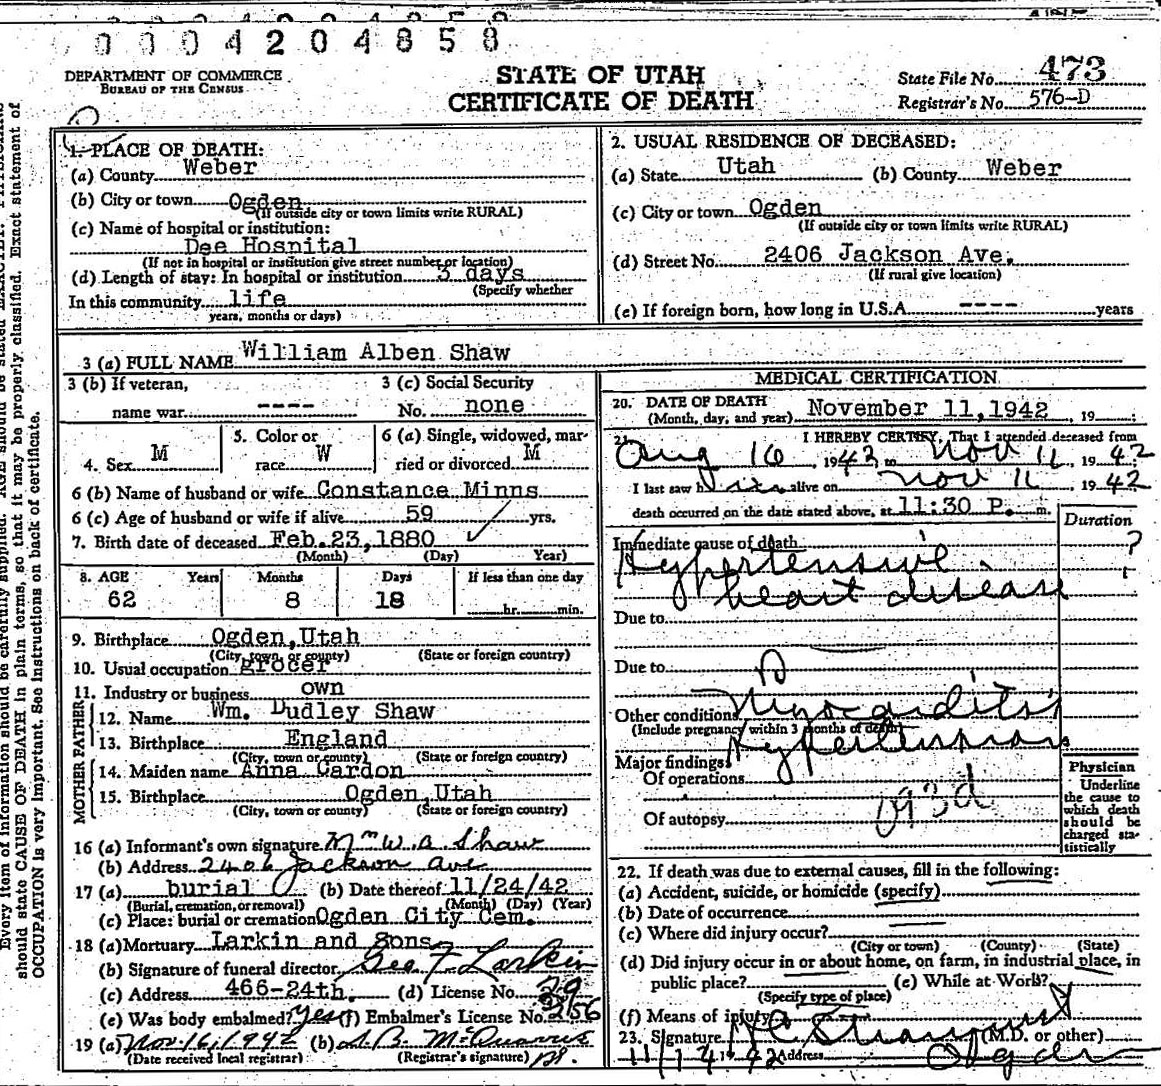 0 0 0 4 2 0 4 8 5 8
DEPARTMENT OF COMMERCE
BUREAU OF THE CENSUS
STATE OF UTAH
CERTIFICATE OF DEATH
State File No. 473
Registrar's No. 576-D
1. PLACE OF DEATH:
(a) County Weber
(b) City or town Ogden
(If outside city or town limits write RURAL)
(c) Name of hospital or institution:
Dee Hospital
(If not in hospital or institution give street number or location)
(d) Length of stay: In hospital or institution 3 days
(Specify whether
In this community life
years, months or days)
2. USUAL RESIDENCE OF DECEASED:
(a) State Utah (b) County Weber
(c) City or town Ogden
(If outside city or town limits write RURAL)
(d) Street No. 2406 Jackson Ave.
(If rural give location)
(e) If foreign born, how long in U.S.A. ---- years
3 (a) FULL NAME William Alben Shaw
3 (b) If veteran,
name war ----
3 (c) Social Security
No. none
4. Sex M
5. Color or
race W
6 (a) Single, widowed, mar-
ried or divorced M
6 (b) Name of husband or wife Constance Minns
6 (c) Age of husband or wife if alive 59 yrs.
7. Birth date of deceased Feb.23,1880
(Month) (Day) Year)
8. AGE Years Months Days If less than one day
62 8 18 hr. min.
9. Birthplace Ogden,Utah
(City, town, or county) (State or foreign country)
10. Usual occupation grocer
11. Industry or business own
FATHER
12. Name Wm. Dudley Shaw
13. Birthplace England
(City, town or county) (State or foreign country)
MOTHER
14. Maiden name Anna Cardon
15. Birthplace Ogden,Utah
(City, town or county) (State or foreign country)
16 (a) Informant's own signature W.A. Shaw
(b) Address 2406 Jackson Ave
17 (a) burial (b) Date thereof 11/24/42
(Burial, cremation, or removal) (Month) (Day) (Year)
(c) Place: burial or cremation Ogden City Cem.
18 (a) Mortuary Larkin and Sons
(b) Signature of funeral director Geo F Larkin
(c) Address 466-24th. (d) License No. 29
(e) Was body embalmed? Yes (f) Embalmer's License No. 256
19 (a) Nov 16, 1942 (b)
(Date received local registrar) (Registrar's signature)
MEDICAL CERTIFICATION
20. DATE OF DEATH
(Month, day, and year) November 11,1942 , 19
21. I HEREBY CERTIFY, That I attended deceased from
Aug 16, 1942, to Nov 11, 1942
I last saw him alive on Nov 11 1942
death occurred on the date stated above, at 11:30 P. m.
Duration
Immediate cause of death ?
Hypertensive
heart disease
Due to
Due to
Other conditions Myocarditis
(Include pregnancy within 3 months of death)
Hypertension
Major findings:
Of operations
Of autopsy 093d
Physician
Underline
the cause to
which death
should be
charged sta-
tistically
22. If death was due to external causes, fill in the following:
(a) Accident, suicide, or homicide (specify)
(b) Date of occurrence
(c) Where did injury occur?
(City or town) (County) (State)
(d) Did injury occur in or about home, on farm, in industrial place, in
public place? (e) While at Work?
(Specify type of place)
(f) Means of injury
23. Signature (M.D. or other)
Address Ogden
should state CAUSE OF DEATH in plain terms, so that it may be properly classified. Exact statement of
OCCUPATION is very important. See instructions on back of certificate.